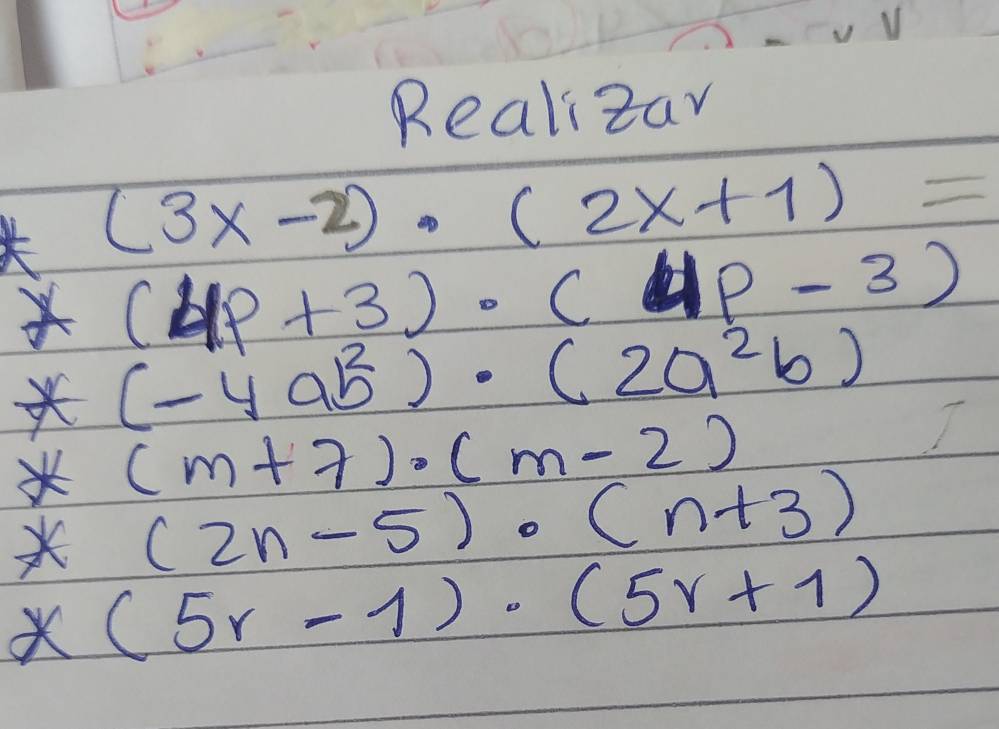 Realizar
* (3x - 2) · (2x + 1) =
* (4p + 3) · (4p - 3)
* (-4ab²) · (2a²b)
* (m + 7) · (m - 2)
* (2n - 5) · (n + 3)
* (5r - 1) · (5r + 1)